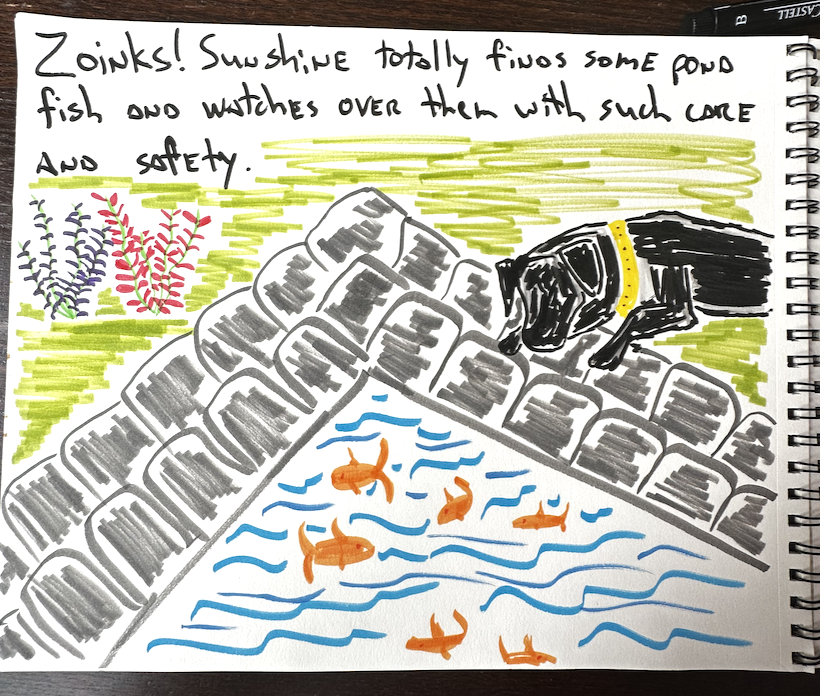 CASTELL
B
Zoinks! Sunshine totally finds some pond
fish and watches over them with such care
and safety.